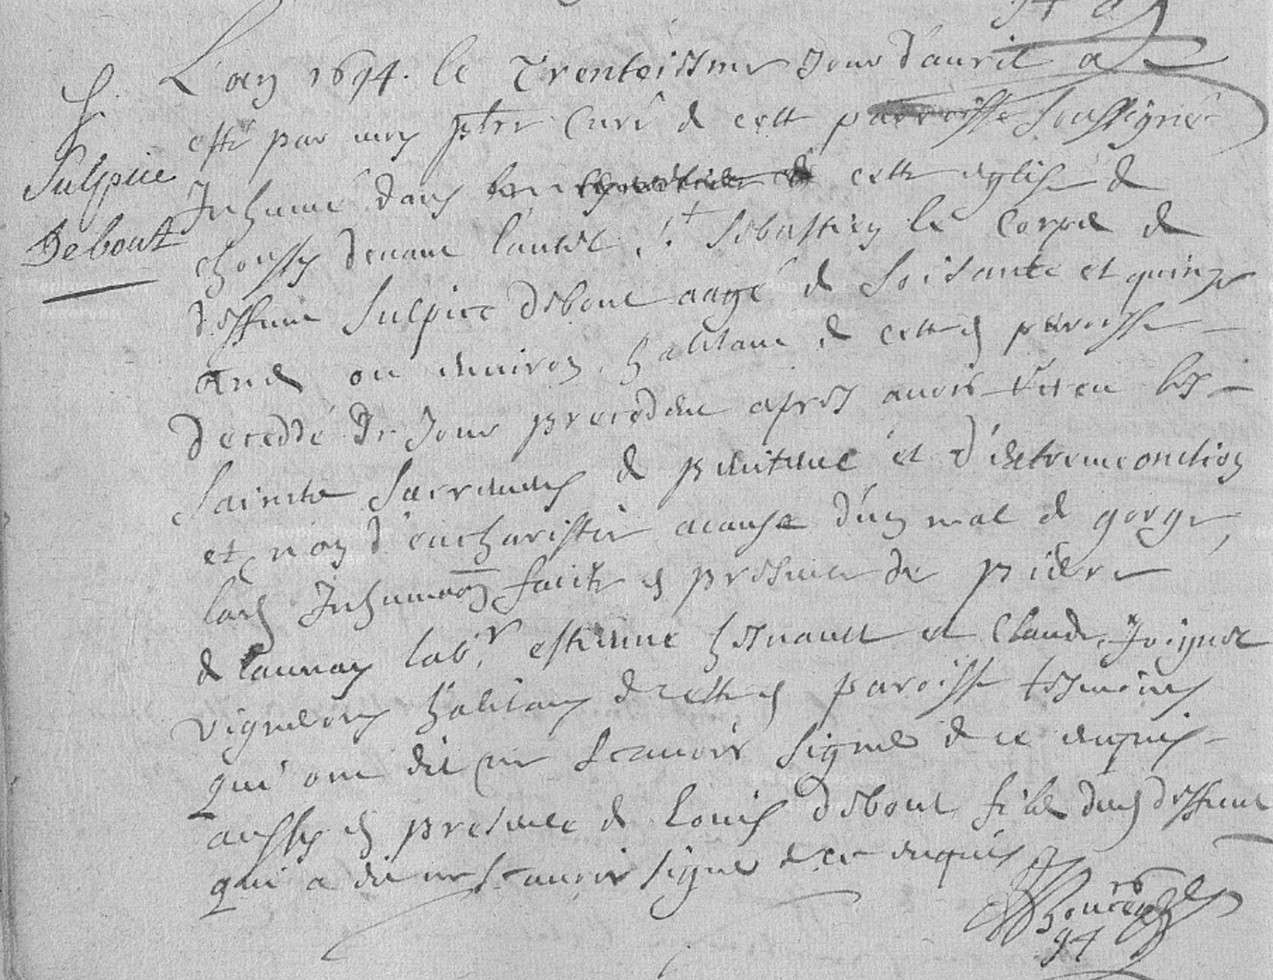 S.
Sulpice
Debout
L'an 1694. le Trentiesme jour d'avril a
esté par moy ptre Curé de cett parroisse soussigné
Inhumé dans cette eglise de
choussy devant l'autel St Sebastien le Corps de
deffunt Sulpice debout aagé de soisante et quinze
ans ou environ habitant de cette d parroisse
deceddé le jour precedent apres avoir receu les
saincts sacremens de penitence et d'extremeonction
et non d'eucharistie a cause d'un mal de gorge,
lad Inhumaon faicte en presence de pierre
de launay labr, estienne hesnault et Claude Joignet
vignerons habitans de cette d paroisse tesmoins
qui ont dit ne scavoir signer de ce enquis
aussy en presence de Louis debout fils dud deffunt
qui a dit ne scavoir signer de ce enquis
16
94